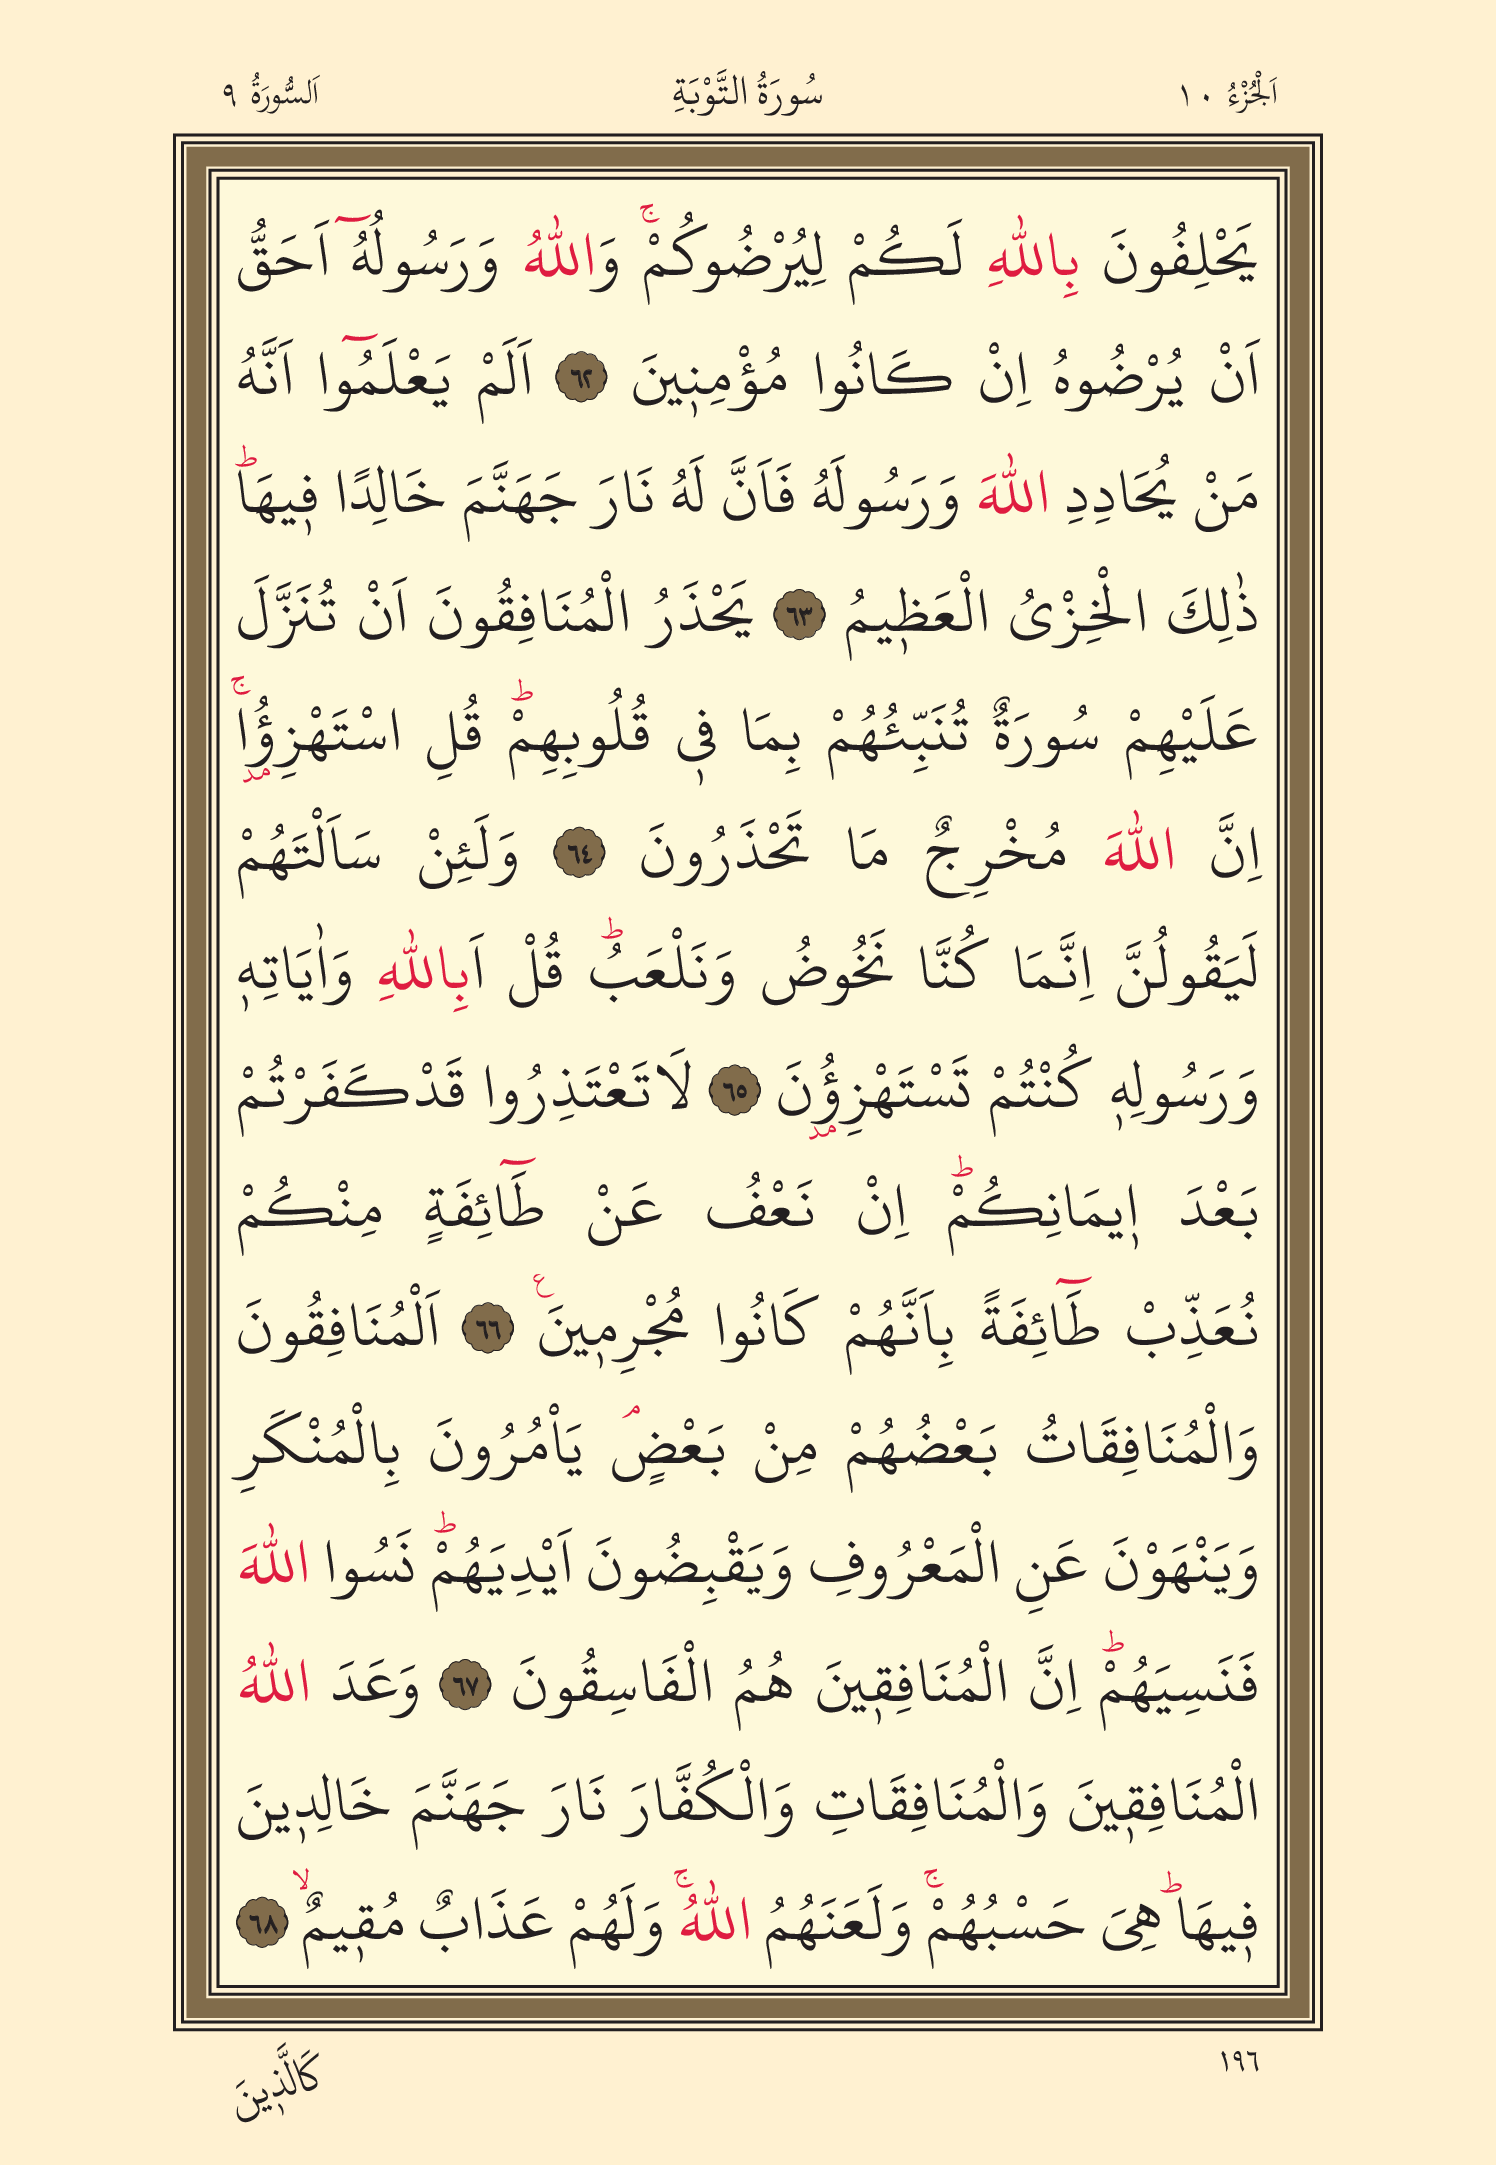 اَلْجُزْءُ ١٠
سُورَةُ التَّوْبَةِ
اَلسُّورَةُ ٩
يَحْلِفُونَ بِاللّٰهِ لَكُمْ لِيُرْضُوكُمْۚ وَاللّٰهُ وَرَسُولُهُٓ اَحَقُّ
اَنْ يُرْضُوهُ اِنْ كَانُوا مُؤْمِنٖينَ ٦٢ اَلَمْ يَعْلَمُٓوا اَنَّهُ
مَنْ يُحَادِدِ اللّٰهَ وَرَسُولَهُ فَاَنَّ لَهُ نَارَ جَهَنَّمَ خَالِدًا فٖيهَاؕ
ذٰلِكَ الْخِزْىُ الْعَظٖيمُ ٦٣ يَحْذَرُ الْمُنَافِقُونَ اَنْ تُنَزَّلَ
عَلَيْهِمْ سُورَةٌ تُنَبِّئُهُمْ بِمَا فٖى قُلُوبِهِمْؕ قُلِ اسْتَهْزِؤُ۫اۚ
اِنَّ اللّٰهَ مُخْرِجٌ مَا تَحْذَرُونَ ٦٤ وَلَئِنْ سَاَلْتَهُمْ
لَيَقُولُنَّ اِنَّمَا كُنَّا نَخُوضُ وَنَلْعَبُؕ قُلْ اَبِاللّٰهِ وَاٰيَاتِهٖ
وَرَسُولِهٖ كُنْتُمْ تَسْتَهْزِؤُ۫نَ ٦٥ لَا تَعْتَذِرُوا قَدْ كَفَرْتُمْ
بَعْدَ اٖيمَانِكُمْؕ اِنْ نَعْفُ عَنْ طَٓائِفَةٍ مِنْكُمْ
نُعَذِّبْ طَٓائِفَةً بِاَنَّهُمْ كَانُوا مُجْرِمٖينَࣖ ٦٦ اَلْمُنَافِقُونَ
وَالْمُنَافِقَاتُ بَعْضُهُمْ مِنْ بَعْضٍۢ يَاْمُرُونَ بِالْمُنْكَرِ
وَيَنْهَوْنَ عَنِ الْمَعْرُوفِ وَيَقْبِضُونَ اَيْدِيَهُمْؕ نَسُوا اللّٰهَ
فَنَسِيَهُمْؕ اِنَّ الْمُنَافِقٖينَ هُمُ الْفَاسِقُونَ ٦٧ وَعَدَ اللّٰهُ
الْمُنَافِقٖينَ وَالْمُنَافِقَاتِ وَالْكُفَّارَ نَارَ جَهَنَّمَ خَالِدٖينَ
فٖيهَاؕ هِىَ حَسْبُهُمْۚ وَلَعَنَهُمُ اللّٰهُۚ وَلَهُمْ عَذَابٌ مُقٖيمٌۙ ٦٨
١٩٦
كَالَّذٖينَ